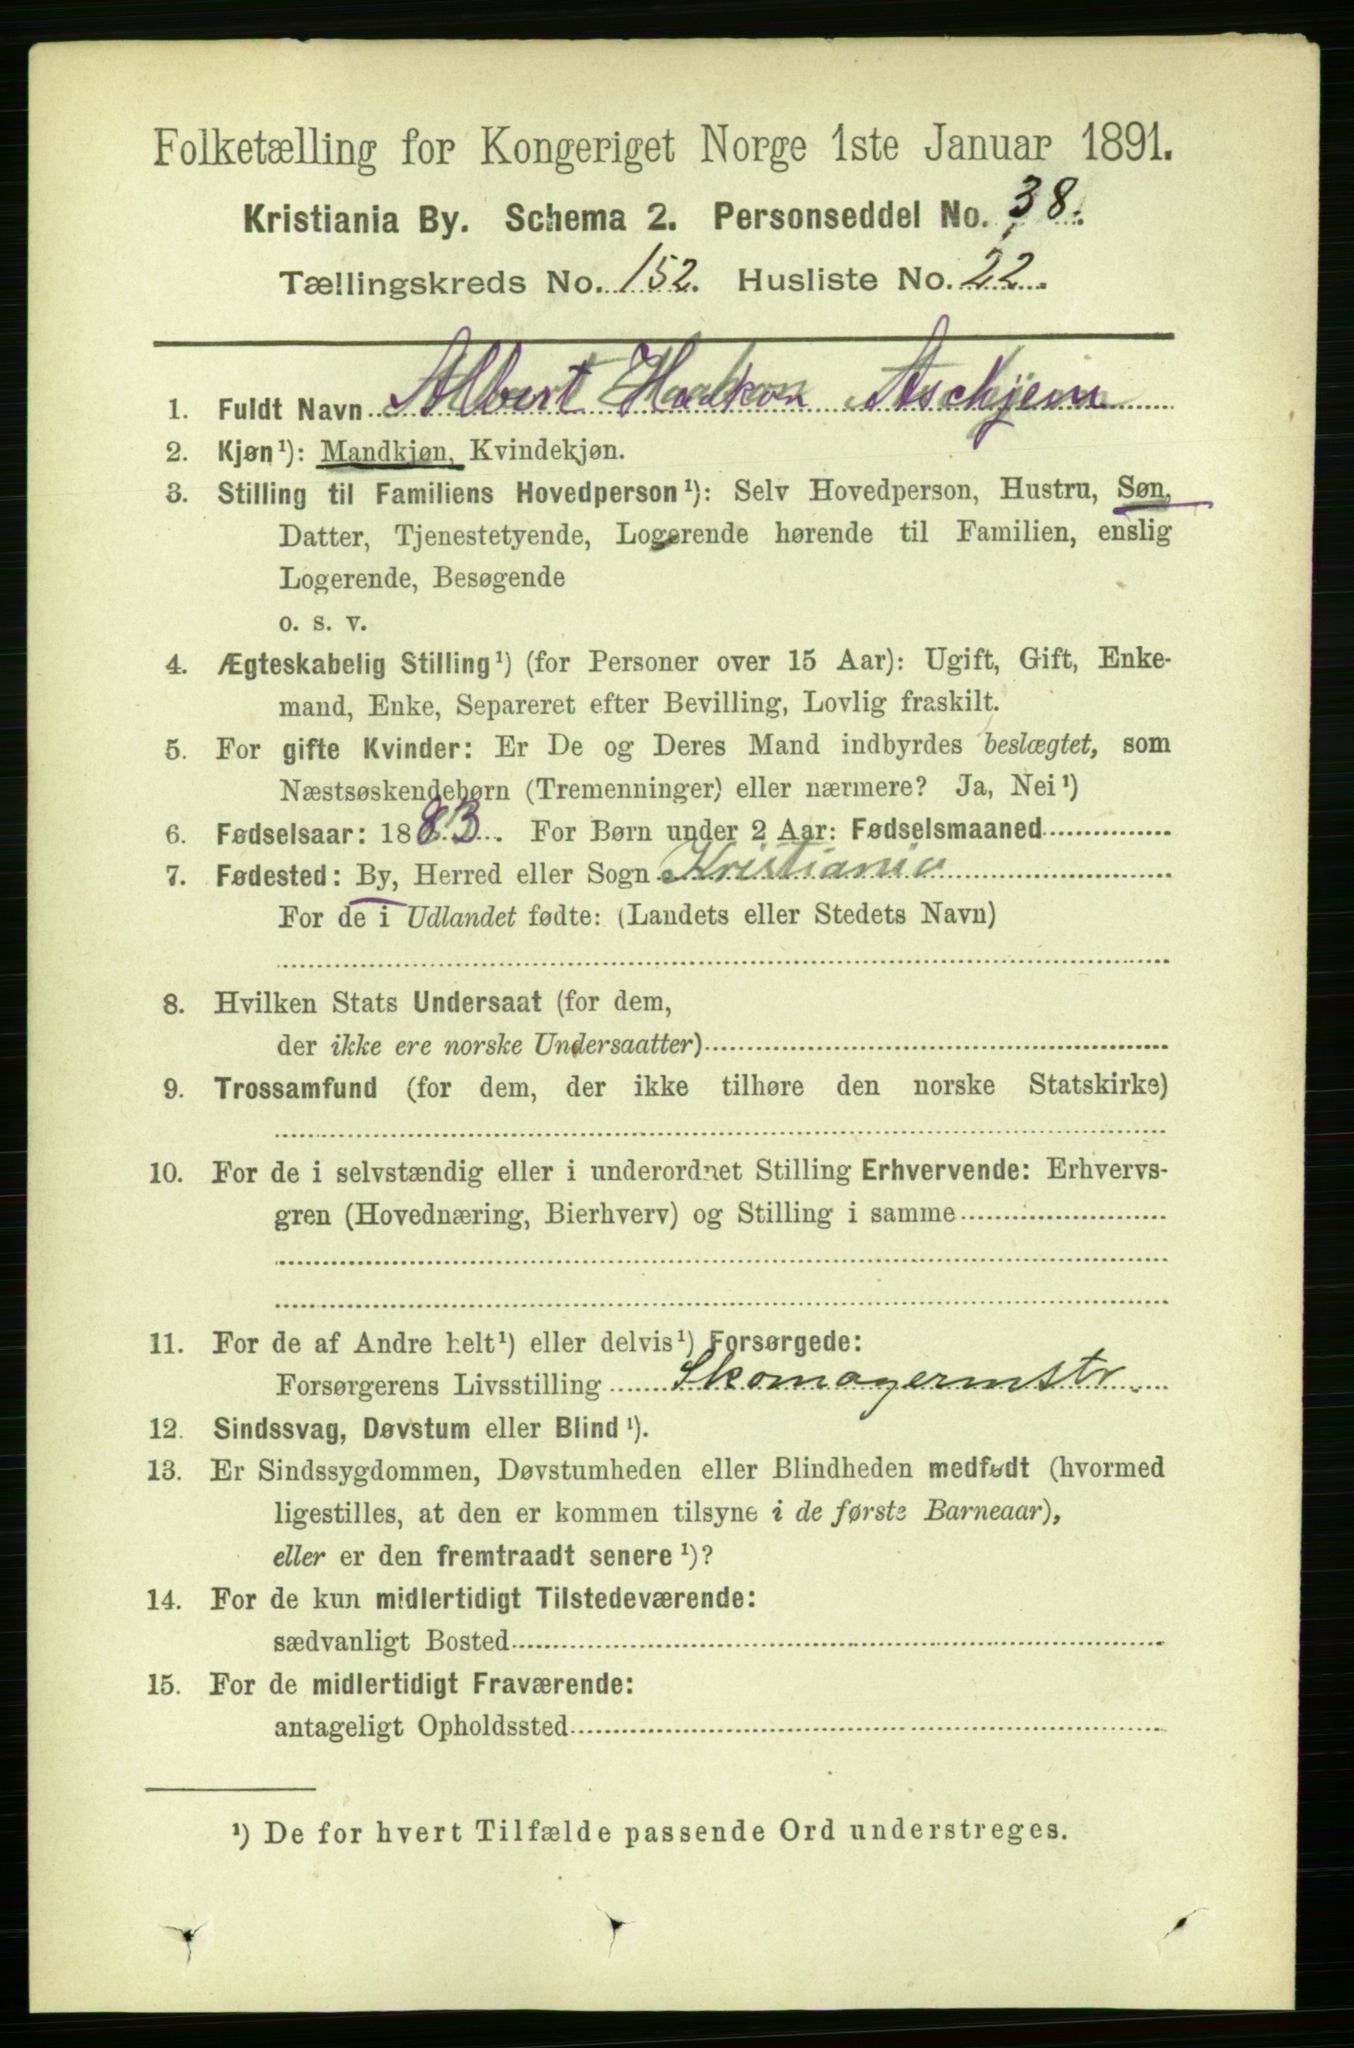 Folketælling for Kongeriget Norge 1ste Januar 1891.
Kristiania By. Schema 2. Personseddel No. 38.
Tællingskreds No. 152. Husliste No. 22.
1. Fuldt Navn Albert Haakon Aschjem
2. Kjøn¹): Mandkjøn, Kvindekjøn.
3. Stilling til Familiens Hovedperson¹): Selv Hovedperson, Hustru, Søn,
Datter, Tjenestetyende, Logerende hørende til Familien, enslig
Logerende, Besøgende
o. s. v.
4. Ægteskabelig Stilling¹) (for Personer over 15 Aar): Ugift, Gift, Enke-
mand, Enke, Separeret efter Bevilling, Lovlig fraskilt.
5. For gifte Kvinder: Er De og Deres Mand indbyrdes beslægtet, som
Næstsøskendebørn (Tremenninger) eller nærmere? Ja, Nei¹)
6. Fødselsaar: 1883. For Børn under 2 Aar: Fødselsmaaned
7. Fødested: By, Herred eller Sogn Kristiania
For de i Udlandet fødte: (Landets eller Stedets Navn)
8. Hvilken Stats Undersaat (for dem,
der ikke ere norske Undersaatter)
9. Trossamfund (for dem, der ikke tilhøre den norske Statskirke)
10. For de i selvstændig eller i underordnet Stilling Erhvervende: Erhvervs-
gren (Hovednæring, Bierhverv) og Stilling i samme
11. For de af Andre helt¹) eller delvis¹) Forsørgede:
Forsørgerens Livsstilling Skomagermstr.
12. Sindssvag, Døvstum eller Blind¹).
13. Er Sindssygdommen, Døvstumheden eller Blindheden medfødt (hvormed
ligestilles, at den er kommen tilsyne i de første Barneaar),
eller er den fremtraadt senere¹)?
14. For de kun midlertidigt Tilstedeværende:
sædvanligt Bosted
15. For de midlertidigt Fraværende:
antageligt Opholdssted
¹) De for hvert Tilfælde passende Ord understreges.